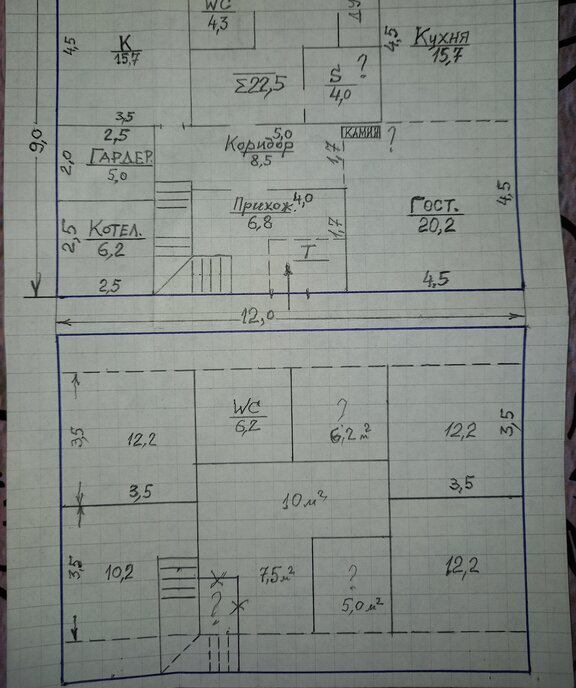 WC
4,3
ДУ
4,5
К
15,7
Σ22,5
?
S
4,0
4,5
Кухня
15,7
9,0
3,5
2,5
5,0
КАМИН
?
2,0
ГАРДЕР.
5,0
Коридор
8,5
1,7
Прихож.
4,0
6,8
Гост.
20,2
4,5
2,5
КОТЕЛ.
6,2
1,7
Т
2,5
4,5
12,0
WC
6,2
?
6,2 м²
3,5
12,2
12,2
3,5
3,5
3,5
10 м²
3,5
10,2
?
7,5 м²
?
5,0 м²
12,2